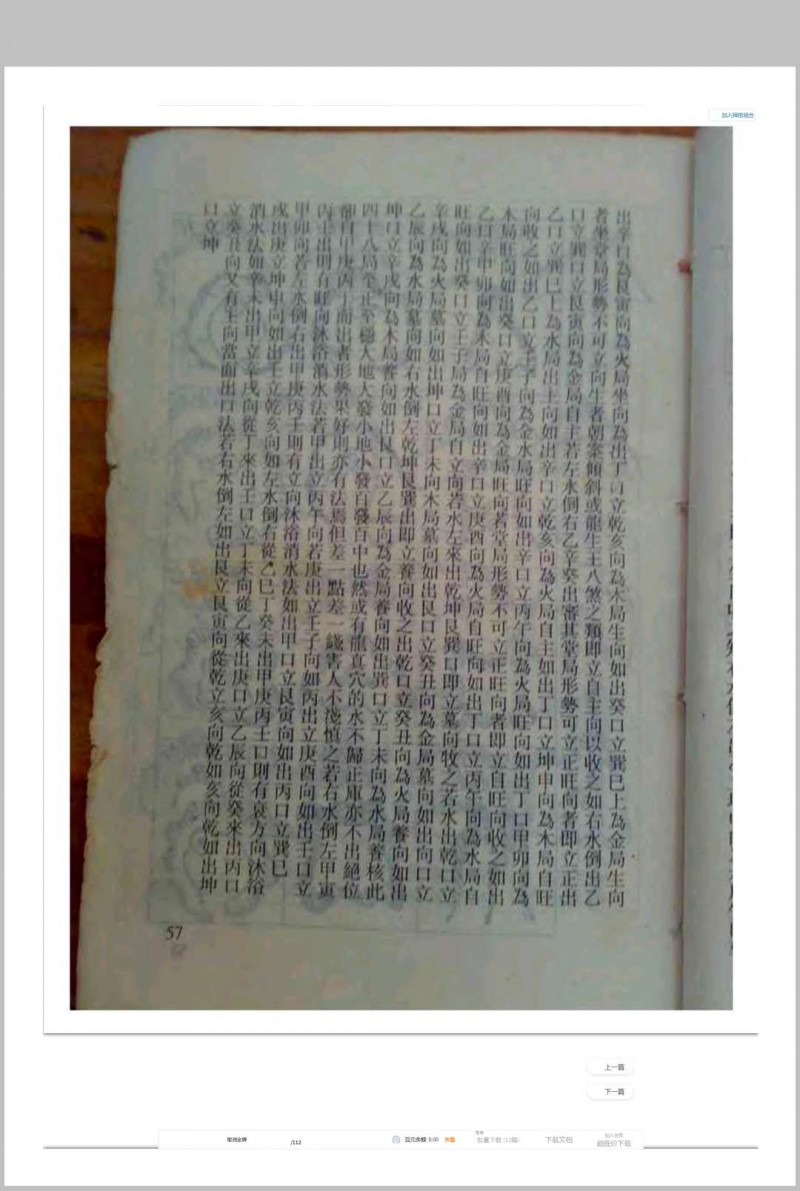 加入阅览组合
出辛口為艮寅向為火局坐向為出丁口立乾亥向為木局生向如出癸口立巽巳上為金局生向
者坐堂局形勢不可立向生者朝案傾斜或龍生王八煞之類即立自主向以收之如右水倒出乙
口立巽口立艮寅向為金局自主若左水倒右乙辛癸出審其堂局形勢可立正旺向者即立正出
乙口立巽巳上為水局出主向如出辛口立乾亥向為火局自主如出丁口立坤申向為木局自旺
向收之如出乙口立壬子向為金水局旺向如出辛口立丙午向為火局旺向如出丁口甲卯向為
木局旺向如出癸口立庚酉向為金局旺向若堂局形勢不可立正旺向者即立自旺向收之如出
乙口辛甲卯向為木局自旺向如出辛口立庚酉向為火局自旺向如出丁口立丙午向為水局自
旺向如出癸口立壬子局為金局自立向若水左來出乾坤艮巽口即立墓向牧之若水出乾口立
辛戌向為火局墓向如出坤口立丁未向木局墓向如出艮口立癸丑向為金局墓向如出向口立
乙辰向為水局墓向如右水倒左乾坤艮巽出即立養向收之出乾口立癸丑向為火局養向如出
坤口立辛戌向為木局養向如出艮口立乙辰向為金局養向如出巽口立丁未向為水局養核此
四十八局至正至穩大地大發小地小發百發百中也然或有龍真穴的水不歸正庫亦不出絕位
卻自甲庚丙丁而出者形勢果好則亦有法焉但差一點差一綫害人不淺慎之若右水倒左甲寅
丙壬出則有旺向沐浴消水法若甲出立丙午向若庚出立壬子向如丙出立庚酉向如出壬口立
甲卯向若左水倒右出甲庚丙壬則有立向沐浴消水法如出甲口立艮寅向如出丙口立巽巳
戌出庚立坤申向如出壬立乾亥向如左水倒右從乙巳丁癸未出甲庚丙壬口則有衰方向沐浴
消水法如辛未出甲立辛戌向從丁來出壬口立丁未向從乙來出庚口立乙辰向從癸來出丙口
立癸丑向又有主向當面出口法若右水倒左如出艮立艮寅向從乾立亥向乾如亥向乾如出坤
口立坤
57
上一篇
下一篇
取消全屏
/112
豆元余额 0.00
充值
批量下载 (12篇)
下载文档
超低价下载